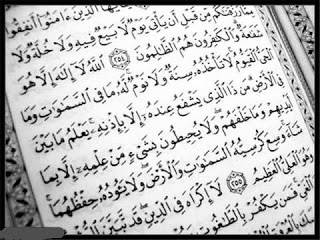 يَٰٓأَيُّهَا ٱلَّذِينَ ءَامَنُوٓا۟ أَنفِقُوا۟
مِمَّا رَزَقْنَٰكُم مِّن قَبْلِ أَن يَأْتِىَ يَوْمٌ لَّا بَيْعٌ فِيهِ وَلَا خُلَّةٌ وَلَا
شَفَٰعَةٌ وَٱلْكَٰفِرُونَ هُمُ ٱلظَّٰلِمُونَ ٢٥٤ ٱللَّهُ لَآ إِلَٰهَ إِلَّا هُوَ
ٱلْحَىُّ ٱلْقَيُّومُ لَا تَأْخُذُهُۥ سِنَةٌ وَلَا نَوْمٌ لَّهُۥ مَا فِى ٱلسَّمَٰوَٰتِ وَمَا
فِى ٱلْأَرْضِ مَن ذَا ٱلَّذِى يَشْفَعُ عِندَهُۥٓ إِلَّا بِإِذْنِهِۦ يَعْلَمُ مَا بَيْنَ
أَيْدِيهِمْ وَمَا خَلْفَهُمْ وَلَا يُحِيطُونَ بِشَىْءٍ مِّنْ عِلْمِهِۦٓ إِلَّا بِمَا
شَآءَ وَسِعَ كُرْسِيُّهُ ٱلسَّمَٰوَٰتِ وَٱلْأَرْضَ وَلَا يَـُٔودُهُۥ حِفْظُهُمَا
وَهُوَ ٱلْعَلِىُّ ٱلْعَظِيمُ ٢٥٥ لَآ إِكْرَاهَ فِى ٱلدِّينِ قَد تَّبَيَّنَ ٱلرُّشْدُ
ٱلْغَىِّ فَمَن يَكْفُرْ بِٱلطَّٰغُوتِ